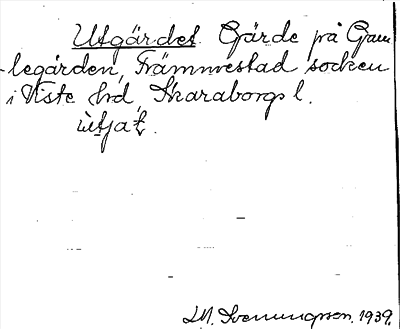 Utgärdet Gärde på Gam-
legården, Främmestad socken
i Viste hrd, Skaraborgs l.
ùtjat.
LM. Svenungsson. 1939.